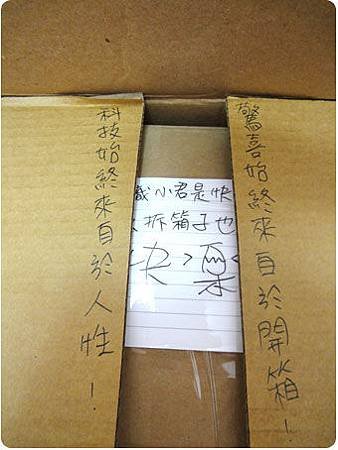 科技始終來自於人性！
小君是快
拆箱子也
快>樂<
驚喜始終來自於開箱！